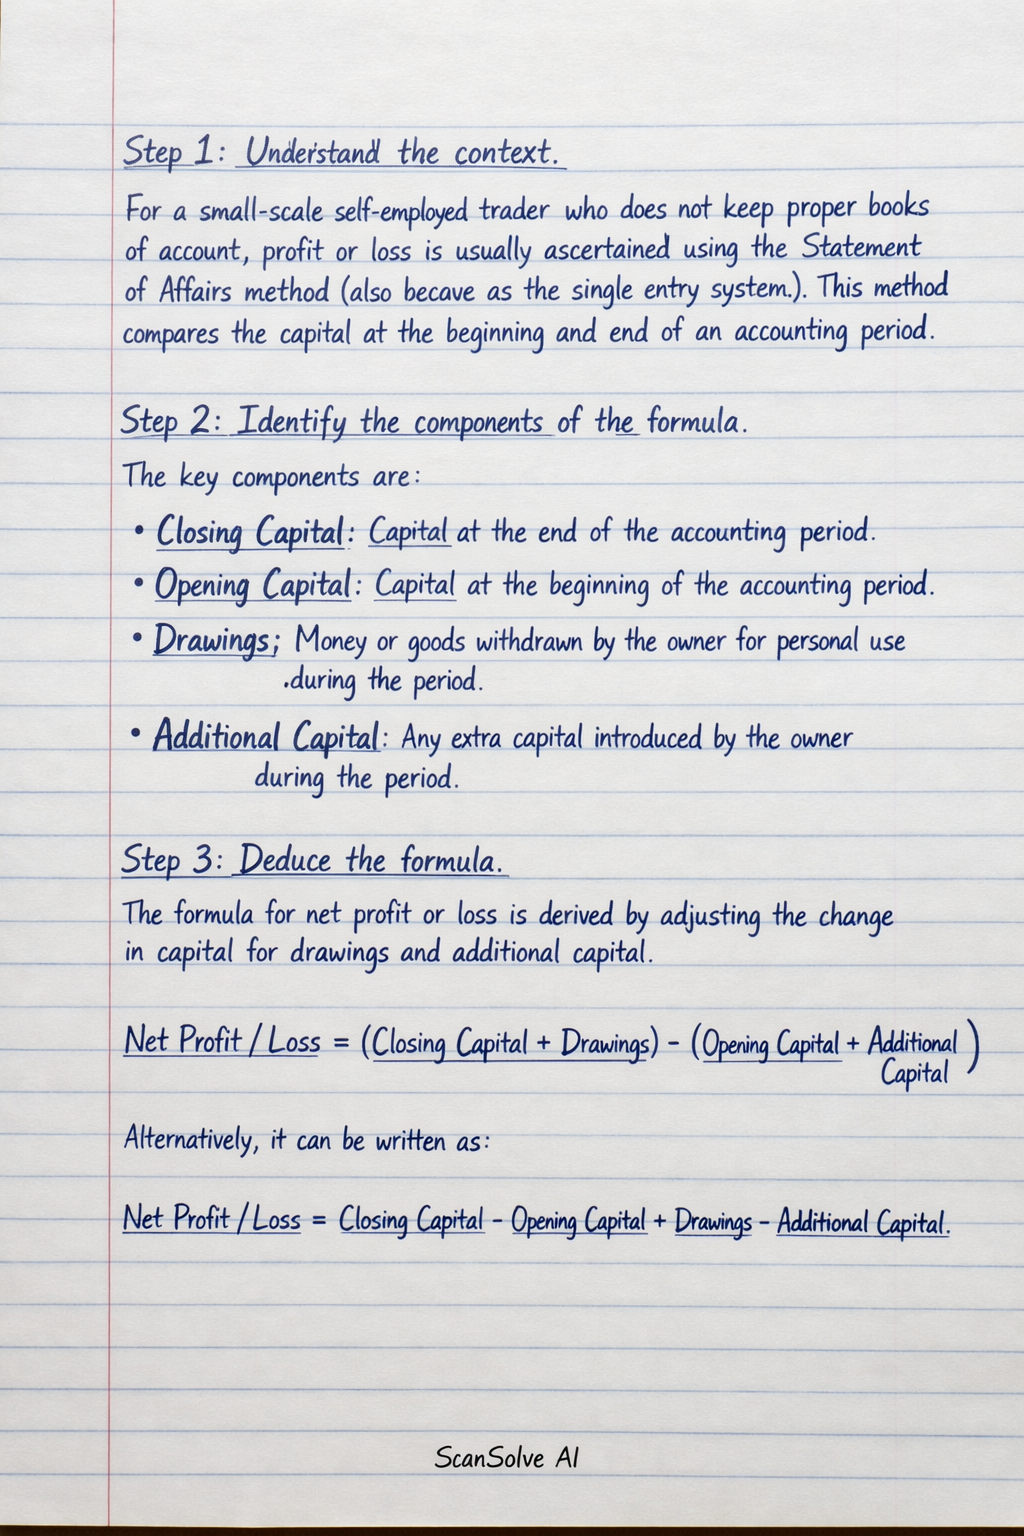 Step 1: Understand the context.
For a small-scale self-employed trader who does not keep proper books
of account, profit or loss is usually ascertained using the Statement
of Affairs method (also becave as the single entry system.). This method
compares the capital at the beginning and end of an accounting period.
Step 2: Identify the components of the formula.
The key components are:
• Closing Capital: Capital at the end of the accounting period.
• Opening Capital: Capital at the beginning of the accounting period.
• Drawings; Money or goods withdrawn by the owner for personal use
.during the period.
• Additional Capital: Any extra capital introduced by the owner
during the period.
Step 3: Deduce the formula.
The formula for net profit or loss is derived by adjusting the change
in capital for drawings and additional capital.
Net Profit / Loss = (Closing Capital + Drawings) - (Opening Capital + Additional
Capital)
Alternatively, it can be written as:
Net Profit / Loss = Closing Capital - Opening Capital + Drawings - Additional Capital.
ScanSolve AI